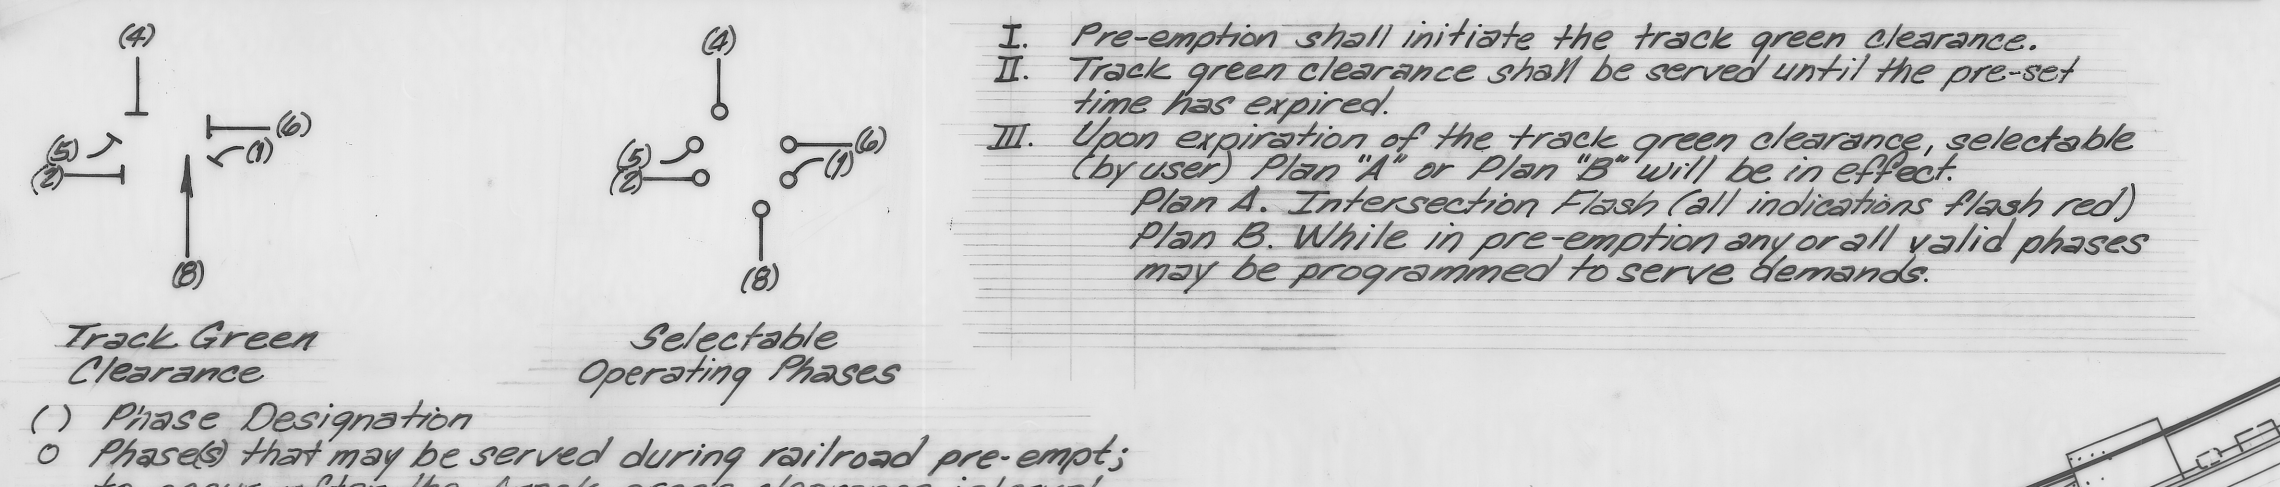 (4)
(6)
(5)
(1)
(2)
(8)
Track Green
Clearance
(4)
(6)
(5)
(1)
(2)
(8)
Selectable
Operating Phases
I. Pre-emption shall initiate the track green clearance.
II. Track green clearance shall be served until the pre-set
time has expired.
III. Upon expiration of the track green clearance, selectable
(by user) Plan "A" or Plan "B" will be in effect.
Plan A. Intersection Flash (all indications flash red)
Plan B. While in pre-emption any or all valid phases
may be programmed to serve demands.
( ) Phase Designation
O Phase(s) that may be served during railroad pre-empt;